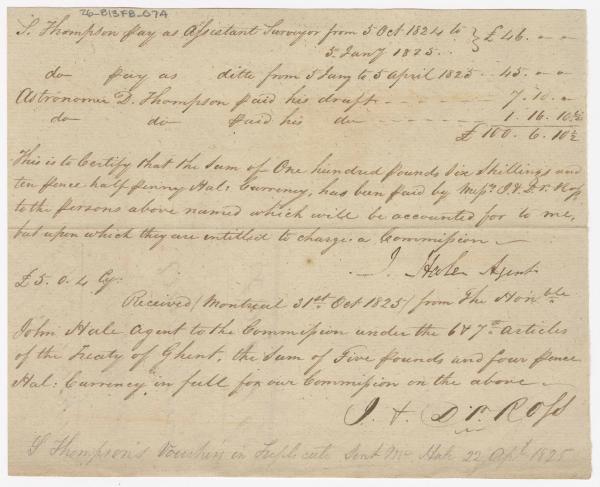 26-B13F8-G7A
S. Thompson pay as Assistant Surveyor from 5 Oct 1824 to } £46. " "
5 Jany 1825..
do pay as ditto from 5 Jany to 5 April 1825 .. 45. " "
Astronomer D. Thompson paid his draft - - - - 7. 10. "
do do paid his do - - - - 1. 16. 10½
£ 100. 6. 10½
This is to Certify that the Sum of One hundred pounds Six Shillings and
ten pence half penny Hal: Currency, has been paid by Messrs J. & Dr. Ross
to the persons above named which will be accounted for to me,
but upon which they are entitled to charge a Commission
J. Hale Agent
£5. 0. 4 Cy.
Received (Montreal 31st Oct 1825) from The Honble
John Hale Agent to the Commission under the 6 & 7th articles
of the Treaty of Ghent, the Sum of Five pounds and four pence
Hal: Currency in full for our Commission on the above
J. & Dr. Ross
S Thompson's Vouchers in Triplicate Sent Mr Hale 22 1825